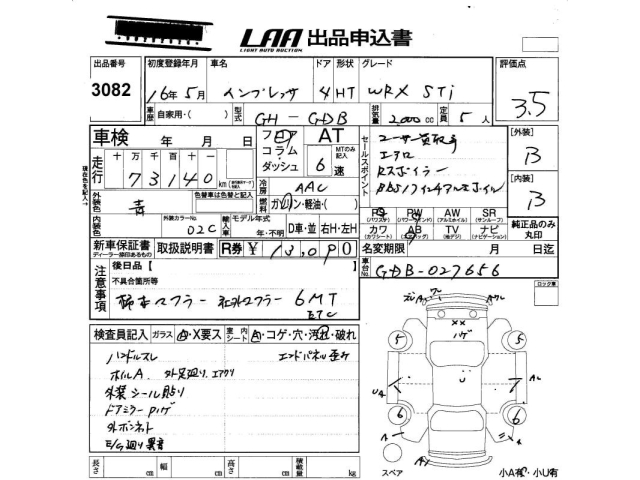 LAA 出品申込書
LIGHT AUTO AUCTION
出品番号 初度登録年月 車名 ドア 形状 グレード 評価点
3082 16年5月 インプレッサ 4 HT WRX STi 3.5
車歴 自家用・( ) 型式 GH-GDB 排気量 2,000 cc 定員 5人
車検 年 月 日 フロア コラム ダッシュ AT 6 速 MTのみ記入
セールスポイント
ユーザー買取車
エアロ
Rスポイラー
BBS17インチアルミホイル
[外装] B
[内装] B
走行 十 万 千 百 十 一
73140 km
外装色 青 色替車は色替と記入
冷房 AAC
燃料 ガソリン・軽油・( )
内装色 外装カラーNo. 02C 輸入車 モデル年式 年・不明 D車・並 右H・左H
PS (パワステ) PW (パワーウィンド) AW (アルミホイル) SR (サンルーフ)
カワ (カワシート) AB (エアバッグ) TV (純デジ) ナビ (ナビゲーション)
純正品のみ欠印
新車保証書 ディーラー捺印あるもの 取扱説明書 R券 ¥ 13,090
名変期限 月 日迄
車台No. GDB-027656
注意事項 後日品 [ ]
不具合箇所等
柿本マフラー 社外マフラー 6MT
ETC
ロック車
検査員記入 ガラス A・X要ス 室内シート A・コゲ・穴・汚れ・破れ
ハンドルスレ エンドパネル歪み
ホイルA 外足廻り、エアクリ
外装シール貼り
ドアミラーPハゲ
外ボンネット
E/G廻り異音
ズレ A ワレ A ワレ
XX
ハゲ
5 5
UA U A
6 6
A A
スペア
小A有・小U有
長さ cm 幅 cm 高さ cm 積載量 kg